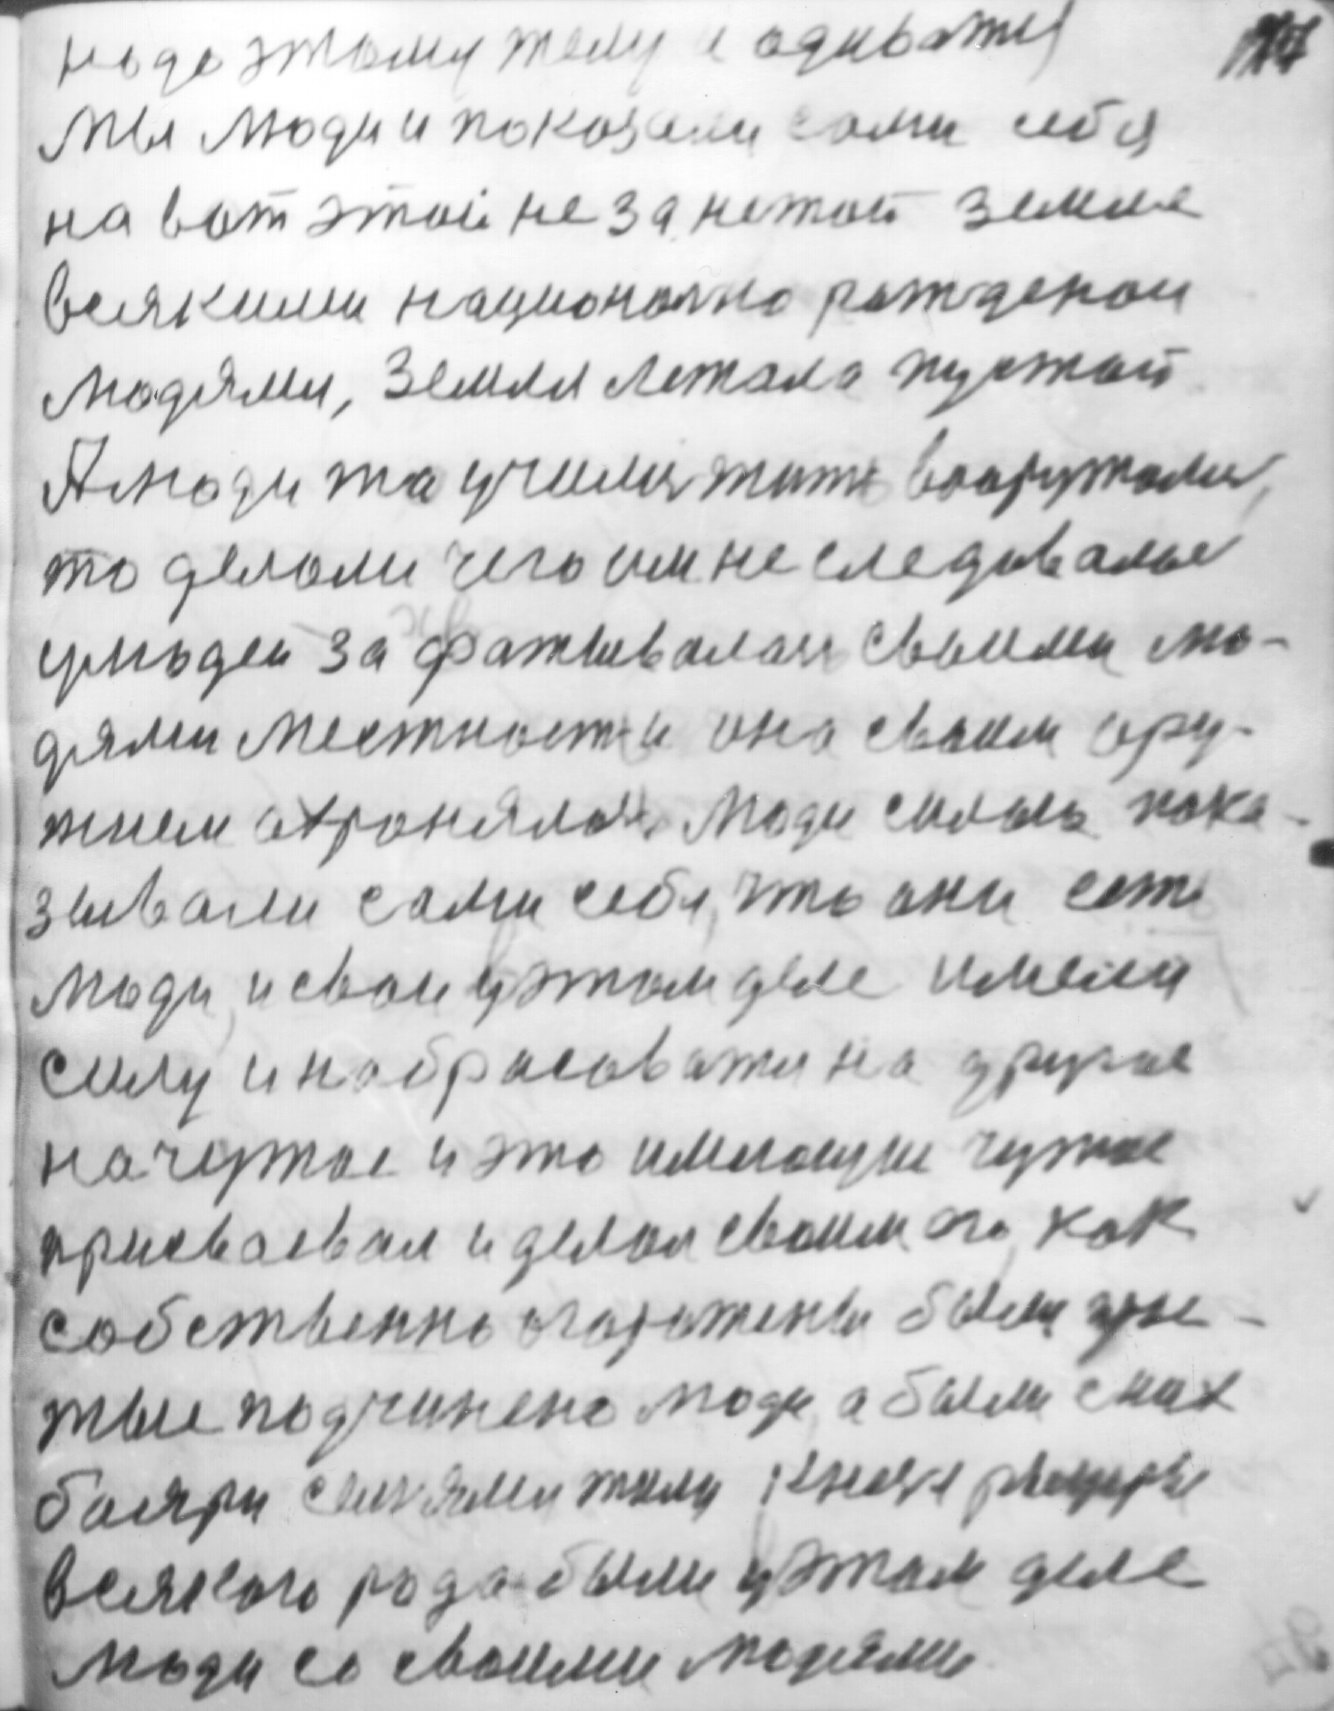 надо этому телу и одеватся
мы люди и показали сами себя
на вот этой не за нетой земле
всякими национално рожденои
людями, Земля лежала пустой
А люди та училис жить вооружались,
то делали чего им не следовалоь
у людеи за фатывалась своими лю-
дями местность и она своим ору-
жием охронялась люди силоь пока-
зывали сами себя, что они сеть
люди, и свои в этом деле имели
силу и набрасоватя на другое
на чужое и это имеющие чужое
присваевал и делал своим ого, как
собственно огорожены были
тые подчинено люди, а были с них
бояри жили князя рыцаре
всякого рода были в этом деле
люди со своими людями